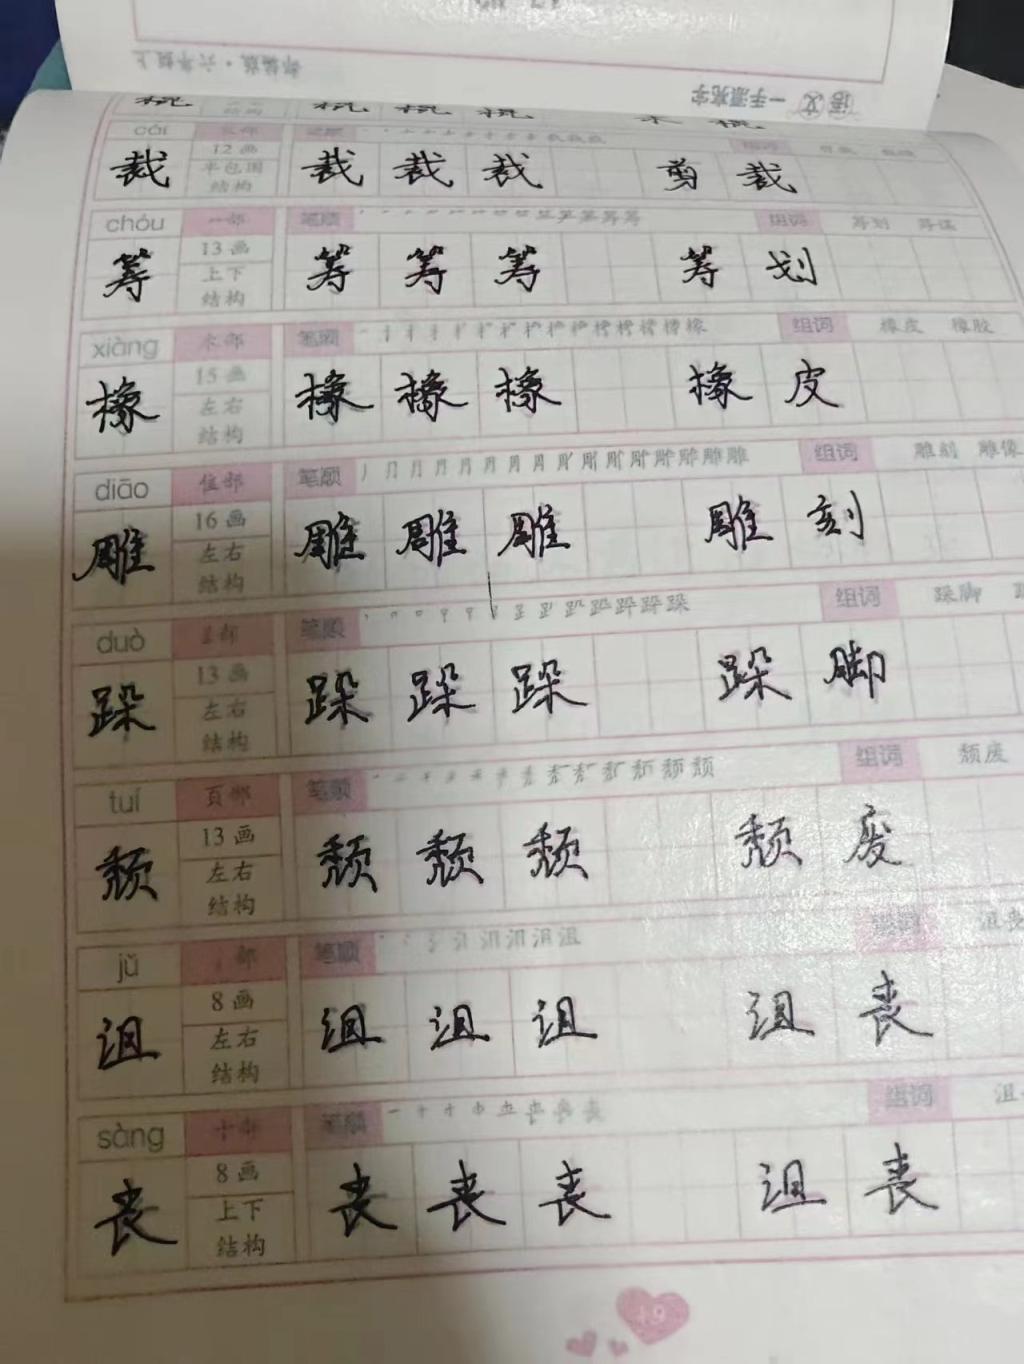 语文 一手漂亮字
部编版·六年级上
cái
12画
半包围
结构
裁 裁 裁 裁 剪裁
chóu 笔顺 组词 筹划 筹谋
13画
上下
结构
筹 筹 筹 筹 筹划
xiàng 木部 笔顺 组词 橡皮 橡胶
15画
左右
结构
橡 橡 橡 橡 橡皮
diāo 隹部 笔顺 组词 雕刻 雕像
16画
左右
结构
雕 雕 雕 雕 雕刻
duò 笔顺 组词 跺脚
13画
左右
结构
跺 跺 跺 跺 跺脚
tuí 页部 笔顺 组词 颓废
13画
左右
结构
颓 颓 颓 颓 颓废
jǔ 部 笔顺 组词 沮丧
8画
左右
结构
沮 沮 沮 沮 沮丧
sàng 十部 笔顺 组词 沮
8画
上下
结构
丧 丧 丧 丧 沮丧
49